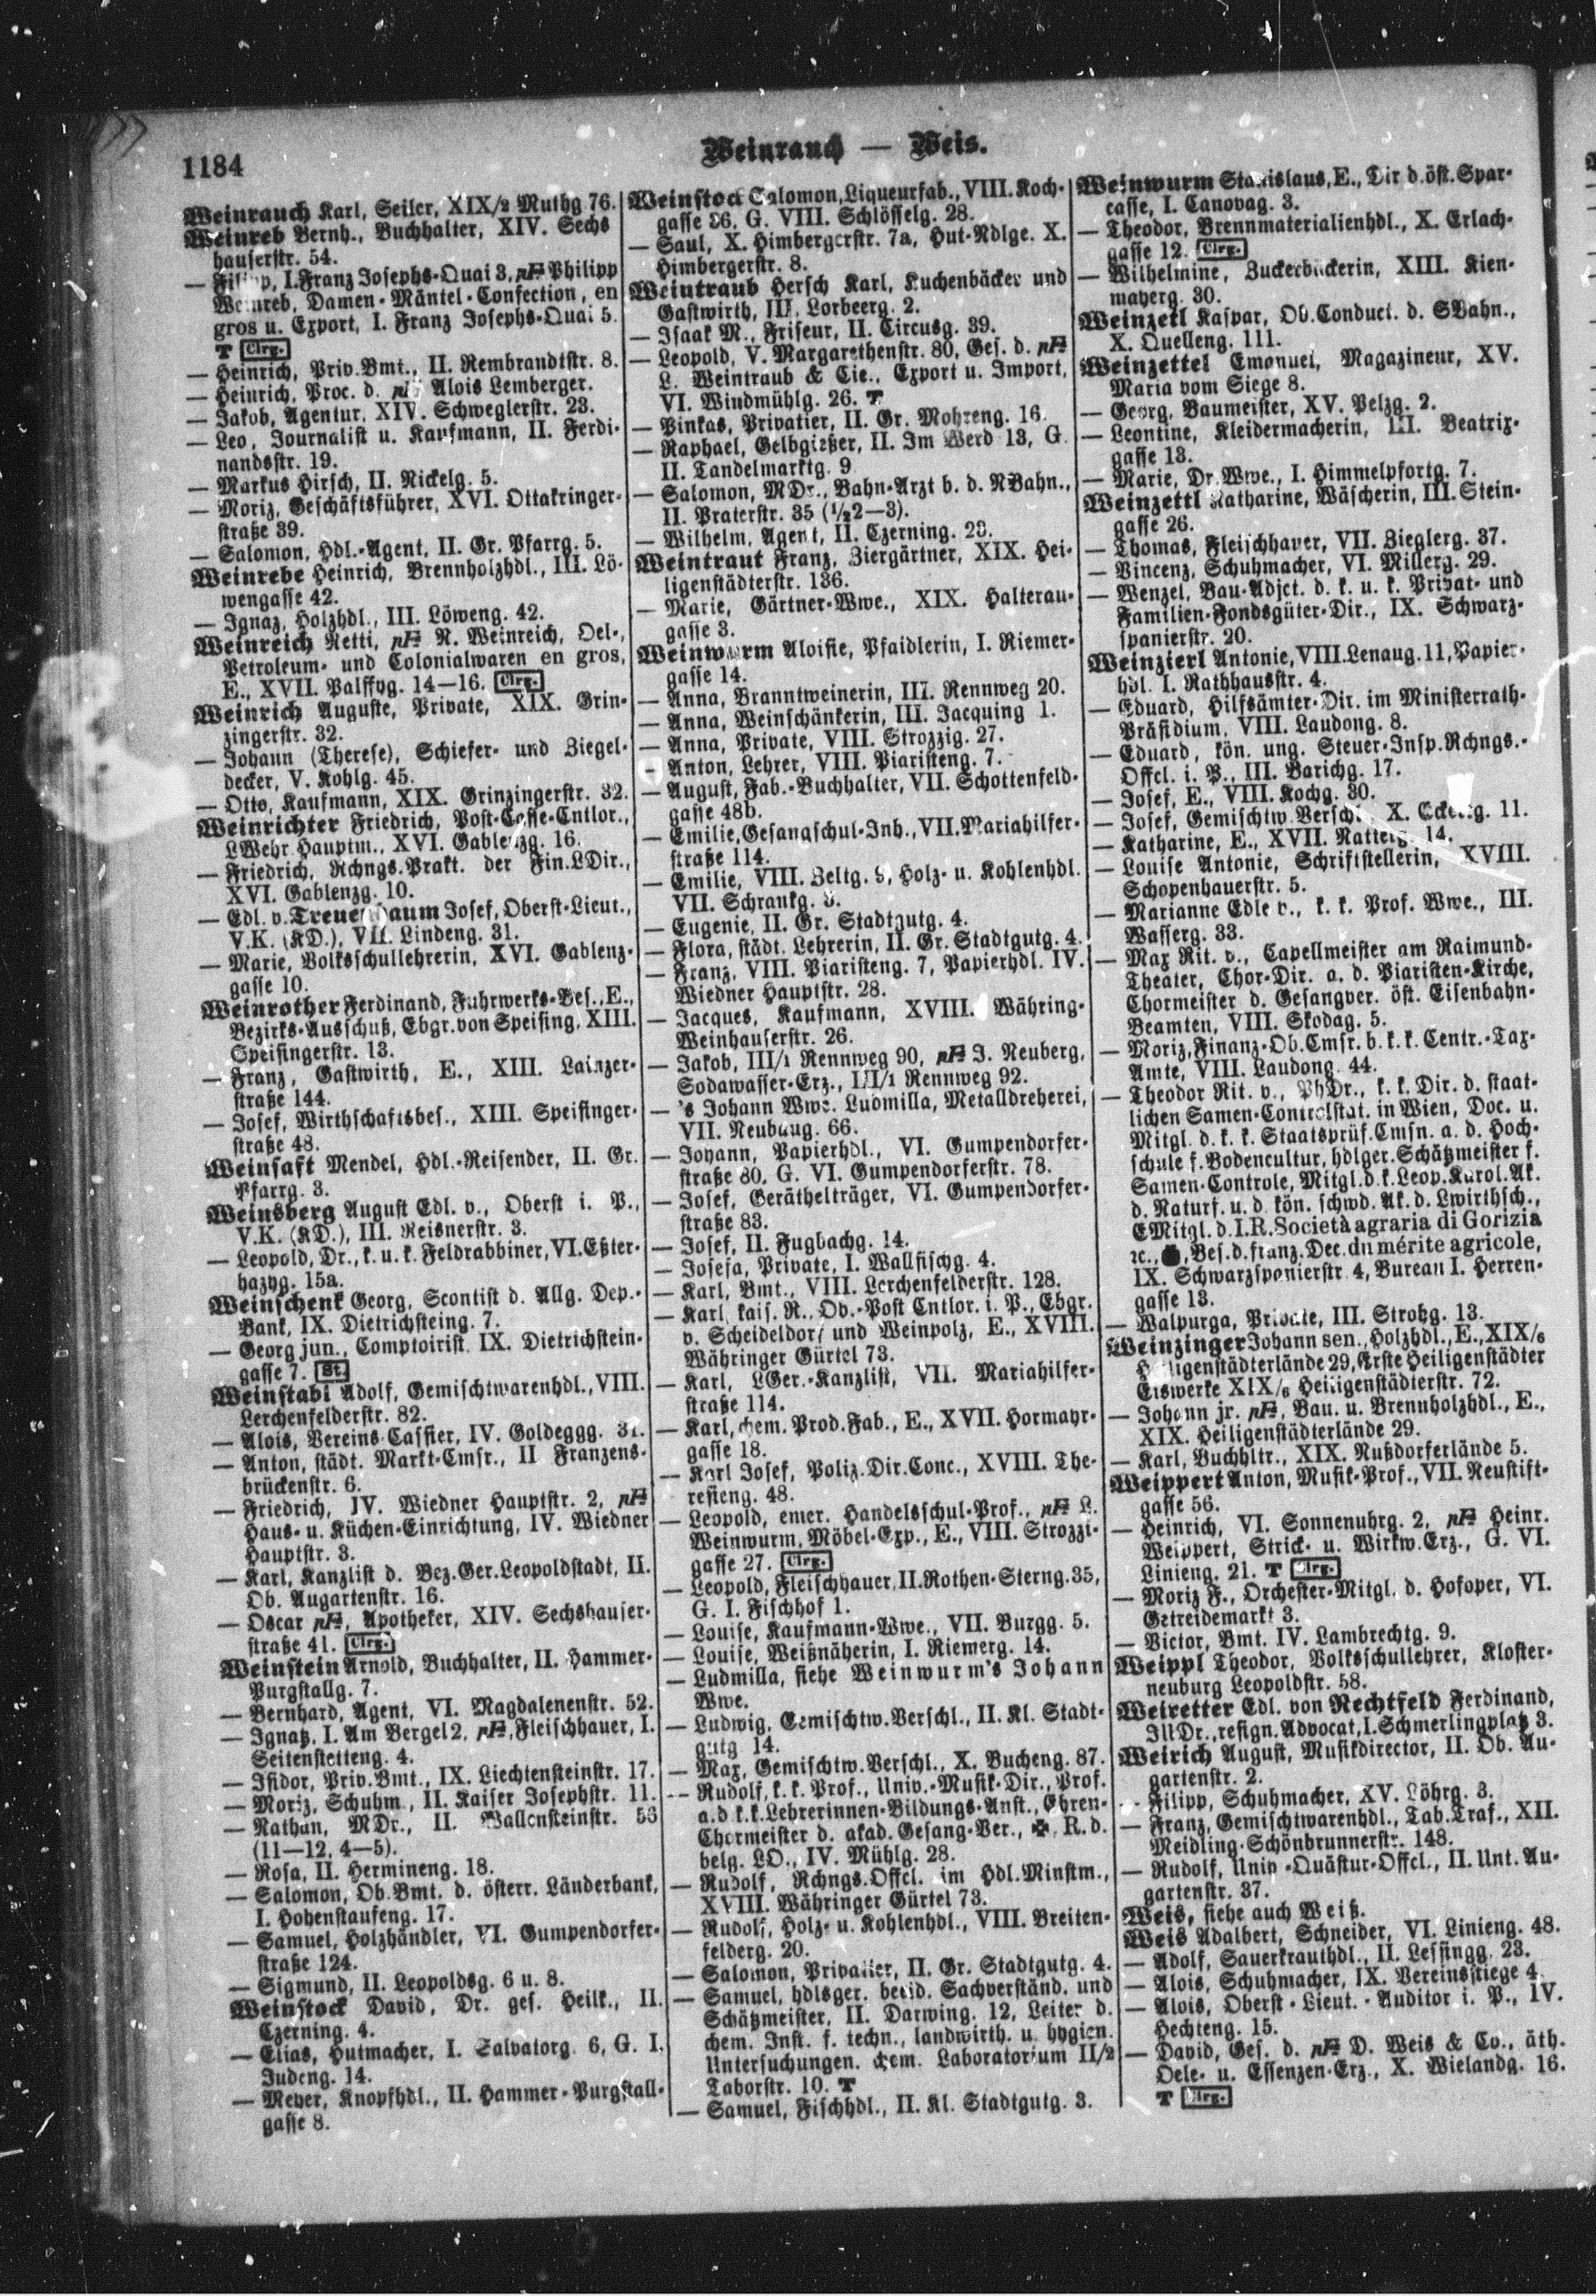 1184
Weinrauch — Weis.
Weinrauch Karl, Seiler, XIX/2 Muthg 76.
Weinreb Bernh., Buchhalter, XIV. Sechs
hauserstr. 54.
— Filipp, I. Franz Josephs-Quai 3, Philipp
Weinreb, Damen-Mäntel-Confection, en
gros u. Export, I. Franz Josephs-Quai 5.
T Clrg.
— Heinrich, Priv.Bmt., II. Rembrandtstr. 8.
— Heinrich, Proc. d. Alois Lemberger.
— Jakob, Agentur, XIV. Schweglerstr. 23.
— Leo, Journalist u. Kaufmann, II. Ferdi-
nandsstr. 19.
— Markus Hirsch, II. Nickelg. 5.
— Moriz, Geschäftsführer, XVI. Ottakringer-
straße 39.
— Salomon, Hdl.-Agent, II. Gr. Pfarrg. 5.
Weinrebe Heinrich, Brennholzhdl., III. Lö-
wengasse 42.
— Ignaz, Holzhdl., III. Löweng. 42.
Weinreich Netti, pF N. Weinreich, Oel-,
Petroleum- und Colonialwaren en gros,
E., XVII. Palffyg. 14—16. Clrg.
Weinrich Auguste, Private, XIX. Grin-
zingerstr. 32.
— Johann (Therese), Schiefer- und Ziegel-
decker, V. Kohlg. 45.
— Otto, Kaufmann, XIX. Grinzingerstr. 32.
Weinrichter Friedrich, Post-Casse-Cntlor.,
LWehr Hauptm., XVI. Gablenzg. 16.
— Friedrich, Rchngs.Prakt. der Fin.LDir.,
XVI. Gablenzg. 10.
— Edl. v. Treuenbaum Josef, Oberst-Lieut.,
V.K. (KD.), VII. Lindeng. 31.
— Marie, Volksschullehrerin, XVI. Gablenz-
gasse 10.
Weinrother Ferdinand, Fuhrwerks-Bes., E.,
Bezirks-Ausschuß, Ebgr. von Speising, XIII.
Speisingerstr. 13.
— Franz, Gastwirth, E., XIII. Lainzer-
straße 144.
— Josef, Wirthschaftsbes., XIII. Speisinger-
straße 48.
Weinsaft Mendel, Hdl.-Reisender, II. Gr.
Pfarrg. 3.
Weinsberg August Edl. v., Oberst i. P.,
V.K. (KD.), III. Reisnerstr. 3.
— Leopold, Dr., k. u. k. Feldrabbiner, VI. Eßter-
hazyg. 15a.
Weinschenk Georg, Scontist d. Allg. Dep.-
Bank, IX. Dietrichsteing. 7.
— Georg jun., Comptoirist, IX. Dietrichstein-
gasse 7. St.
Weinstabl Adolf, Gemischtwarenhdl., VIII.
Lerchenfelderstr. 82.
— Alois, Vereins Cassier, IV. Goldeggg. 31.
— Anton, städt. Markt-Cmsr., II Franzens-
brückenstr. 6.
— Friedrich, IV. Wiedner Hauptstr. 2, pF
Haus- u. Küchen-Einrichtung, IV. Wiedner
Hauptstr. 3.
— Karl, Kanzlist d. Bez.Ger.Leopoldstadt, II.
Ob. Augartenstr. 16.
— Oscar pF, Apotheker, XIV. Sechshauser-
straße 41. Clrg.
Weinstein Arnold, Buchhalter, II. Hammer-
Purgstallg. 7.
— Bernhard, Agent, VI. Magdalenenstr. 52.
— Ignatz, I. Am Bergel 2, pF, Fleischhauer, I.
Seitenstetteng. 4.
— Isidor, Priv.Bmt., IX. Liechtensteinstr. 17.
— Moriz, Schuhm., II. Kaiser Josephstr. 11.
— Nathan, MDr., II. Wallensteinstr. 56
(11—12, 4—5).
— Rosa, II. Hermineng. 18.
— Salomon, Ob.Bmt. d. österr. Länderbank,
I. Hohenstaufeng. 17.
— Samuel, Holzhändler, VI. Gumpendorfer-
straße 124.
— Sigmund, II. Leopoldsg. 6 u. 8.
Weinstock David, Dr. ges. Heilk., II.
Czerning. 4.
— Elias, Hutmacher, I. Salvatorg. 6, G. I.
Judeng. 14.
— Meyer, Knopfhdl., II. Hammer-Purgstall-
gasse 8.
Weinstock Salomon, Liqueurfab., VIII. Koch-
gasse 36. G. VIII. Schlösselg. 28.
— Saul, X. Himbergerstr. 7a, Hut-Ndlge. X.
Himbergerstr. 8.
Weintraub Hersch Karl, Kuchenbäcker und
Gastwirth, III. Lorbeerg. 2.
— Isaak M., Friseur, II. Circusg. 39.
— Leopold, V. Margarethenstr. 80, Ges. d. pF
L. Weintraub & Cie., Export u. Import,
VI. Windmühlg. 26. T
— Pinkas, Privatier, II. Gr. Mohreng. 16.
— Raphael, Gelbgießer, II. Im Werd 13, G.
II. Tandelmarktg. 9
— Salomon, MDr., Bahn-Arzt b. d. NBahn.,
II. Praterstr. 35 (½2—3).
— Wilhelm, Agent, II. Czerning. 29.
Weintraut Franz, Ziergärtner, XIX. Hei-
ligenstädterstr. 136.
— Marie, Gärtner-Wwe., XIX. Halterau-
gasse 3.
Weinwurm Aloisie, Pfaidlerin, I. Riemer-
gasse 14.
— Anna, Branntweinerin, III. Rennweg 20.
— Anna, Weinschänkerin, III. Jacquing 1.
— Anna, Private, VIII. Strozzig. 27.
— Anton, Lehrer, VIII. Piaristeng. 7.
— August, Fab.-Buchhalter, VII. Schottenfeld-
gasse 48b.
— Emilie, Gesangschul-Inh., VII. Mariahilfer-
straße 114.
— Emilie, VIII. Zeltg. 9, Holz- u. Kohlenhdl.
VII. Schrankg.
— Eugenie, II. Gr. Stadtgutg. 4.
— Flora, städt. Lehrerin, II. Gr. Stadtgutg. 4.
— Franz, VIII. Piaristeng. 7, Papierhdl. IV.
Wiedner Hauptstr. 28.
— Jacques, Kaufmann, XVIII. Währing-
Weinhauserstr. 26.
— Jakob, III/1 Rennweg 90, pF J. Neuberg,
Sodawasser-Erz., III/1 Rennweg 92.
— 's Johann Wwe. Ludmilla, Metalldreherei,
VII. Neubaug. 66.
— Johann, Papierhdl., VI. Gumpendorfer-
straße 80, G. VI. Gumpendorferstr. 78.
— Josef, Geräthelträger, VI. Gumpendorfer-
straße 83.
— Josef, II. Fugbachg. 14.
— Josefa, Private, I. Wallfischg. 4.
— Karl, Bmt., VIII. Lerchenfelderstr. 128.
— Karl, kais. R., Ob.-Post Cntlor. i. P., Ebgr.
v. Scheideldorf und Weinpolz, E., XVIII.
Währinger Gürtel 73.
— Karl, LGer.-Kanzlist, VII. Mariahilfer-
straße 114.
— Karl, chem. Prod.Fab., E., XVII. Hormayr-
gasse 18.
— Karl Josef, Poliz.Dir.Conc., XVIII. The-
resieng. 48.
— Leopold, emer. Handelsschul-Prof., pF L.
Weinwurm, Möbel-Exp., E., VIII. Strozzi-
gasse 27. Clrg.
— Leopold, Fleischhauer, II. Rothen-Sterng. 35,
G. I. Fischhof 1.
— Louise, Kaufmann-Wwe., VII. Burgg. 5.
— Louise, Weißnäherin, I. Riemerg. 14.
— Ludmilla, siehe Weinwurm's Johann
Wwe.
— Ludwig, Gemischtw.Verschl., II. Kl. Stadt-
gutg 14.
— Max, Gemischtw.Verschl., X. Bucheng. 87.
— Rudolf, k. k. Prof., Univ.-Musik-Dir., Prof.
a.d k.k.Lehrerinnen-Bildungs-Anst., Ehren-
Chormeister d. akad. Gesang-Ver., ✠, R. d.
belg. LO., IV. Mühlg. 28.
— Rudolf, Rchngs.Offcl. im Hdl.Minstm.,
XVIII. Währinger Gürtel 73.
— Rudolf, Holz- u. Kohlenhdl., VIII. Breiten-
felderg. 20.
— Salomon, Privatier, II. Gr. Stadtgutg. 4.
— Samuel, hdlsger. beeid. Sachverständ. und
Schätzmeister, II. Darwing. 12, Leiter d.
chem. Inst. f. techn., landwirth. u. hygien.
Untersuchungen. chem. Laboratorium II/2
Taborstr. 10. T
— Samuel, Fischhdl., II. Kl. Stadtgutg. 3.
Weinwurm Stanislaus, E., Dir d. öst. Spar-
casse, I. Canovag. 3.
— Theodor, Brennmaterialienhdl., X. Erlach-
gasse 12. Clrg.
— Wilhelmine, Zuckerbäckerin, XIII. Kien-
mayerg. 30.
Weinzerl Kaspar, Ob.Conduct. d. SBahn.,
X. Quelleng. 111.
Weinzettel Emanuel, Magazineur, XV.
Maria vom Siege 8.
— Georg, Baumeister, XV. Pelzg. 2.
— Leontine, Kleidermacherin, III. Beatrix-
gasse 13.
— Marie, Dr.Wwe., I. Himmelpfortg. 7.
Weinzettl Katharine, Wäscherin, III. Stein-
gasse 26.
— Thomas, Fleischhauer, VII. Zieglerg. 37.
— Vincenz, Schuhmacher, VI. Millerg. 29.
— Wenzel, Bau-Adjct. d. k. u. k. Privat- und
Familien-Fondsgüter-Dir., IX. Schwarz-
spanierstr. 20.
Weinzierl Antonie, VIII. Lenaug. 11, Papier-
hdl. I. Rathhausstr. 4.
— Eduard, Hilfsämter-Dir. im Ministerrath-
Präsidium, VIII. Laudong. 8.
— Eduard, kön. ung. Steuer-Insp.Rchngs.-
Offcl. i. P., III. Barichg. 17.
— Josef, E., VIII. Kochg. 30.
— Josef, Gemischtw.Verschl. X. 11.
— Katharine, E., XVII. 14.
— Louise Antonie, Schriftstellerin, XVIII.
Schopenhauerstr. 5.
— Marianne Edle v., k. k. Prof. Wwe., III.
Wasserg. 33.
— Max Rit. v., Capellmeister am Raimund-
Theater, Chor-Dir. a. d. Piaristen-Kirche,
Chormeister d. Gesangver. öst. Eisenbahn-
Beamten, VIII. Skodag. 5.
— Moriz, Finanz-Ob.Cmsr. b. k. k. Centr.-Tax-
Amte, VIII. Laudong. 44.
— Theodor Rit. v., PhDr., k. k. Dir. d. staat-
lichen Samen-Controlstat. in Wien, Doc. u.
Mitgl. d. k. k. Staatsprüf.Cmsn. a. d. Hoch-
schule f. Bodencultur, hdlger. Schätzmeister f.
Samen-Controle, Mitgl. d. k. Leop. Karol. Ak.
d. Naturf. u. d. kön. schwd. Ak. d. Lwirthsch.,
EMitgl. d. I.R. Società agraria di Gorizia
rc., Bes. d. franz. Dec. du mérite agricole,
IX. Schwarzspanierstr. 4, Bureau I. Herren-
gasse 13.
— Walpurga, Private, III. Strohg. 13.
Weinzinger Johann sen., Holzhdl., E., XIX/6
Heiligenstädterlände 29, Erste Heiligenstädter
Eiswerke XIX/6 Heiligenstädterstr. 72.
— Johann jr. pF, Bau. u. Brennholzhdl., E.,
XIX. Heiligenstädterlände 29.
— Karl, Buchhltr., XIX. Nußdorferlände 5.
Weippert Anton, Musik-Prof., VII. Neustift-
gasse 56.
— Heinrich, VI. Sonnenuhrg. 2, pF Heinr.
Weippert, Strick- u. Wirkw.Erz., G. VI.
Linieng. 21. T Clrg.
— Moriz F., Orchester-Mitgl. d. Hofoper, VI.
Getreidemarkt 3.
— Victor, Bmt. IV. Lambrechtg. 9.
Weippl Theodor, Volksschullehrer, Kloster-
neuburg Leopoldstr. 58.
Weiretter Edl. von Rechtfeld Ferdinand,
JUDr., resign. Advocat, I. Schmerlingplatz 3.
Weirich August, Musikdirector, II. Ob. Au-
gartenstr. 2.
— Filipp, Schuhmacher, XV. Löhrg. 3.
— Franz, Gemischtwarenhdl., Tab.Traf., XII.
Meidling-Schönbrunnerstr. 148.
— Rudolf, Univ-Quästur-Offcl., II. Unt. Au-
gartenstr. 37.
Weis, siehe auch Weiß.
Weis Adalbert, Schneider, VI. Linieng. 48.
— Adolf, Sauerkrauthdl., II. Lessingg. 23.
— Alois, Schuhmacher, IX. Vereinsstiege 4.
— Alois, Oberst-Lieut.-Auditor i. P., IV.
Hechteng. 15.
— David, Ges. d. pF D. Weis & Co., äth.
Oele- u. Essenzen-Erz., X. Wielandg. 16.
T Clrg.